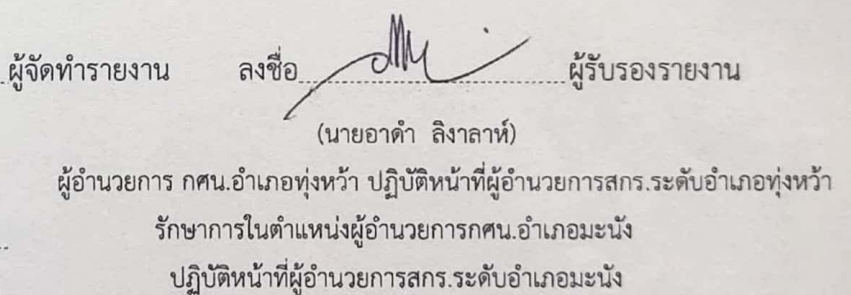 ผู้จัดทำรายงาน ลงชื่อ ผู้รับรองรายงาน
(นายอาดำ ลิงาลาห์)
ผู้อำนวยการ กศน.อำเภอทุ่งหว้า ปฏิบัติหน้าที่ผู้อำนวยการสกร.ระดับอำเภอทุ่งหว้า
รักษาการในตำแหน่งผู้อำนวยการกศน.อำเภอมะนัง
ปฏิบัติหน้าที่ผู้อำนวยการสกร.ระดับอำเภอมะนัง